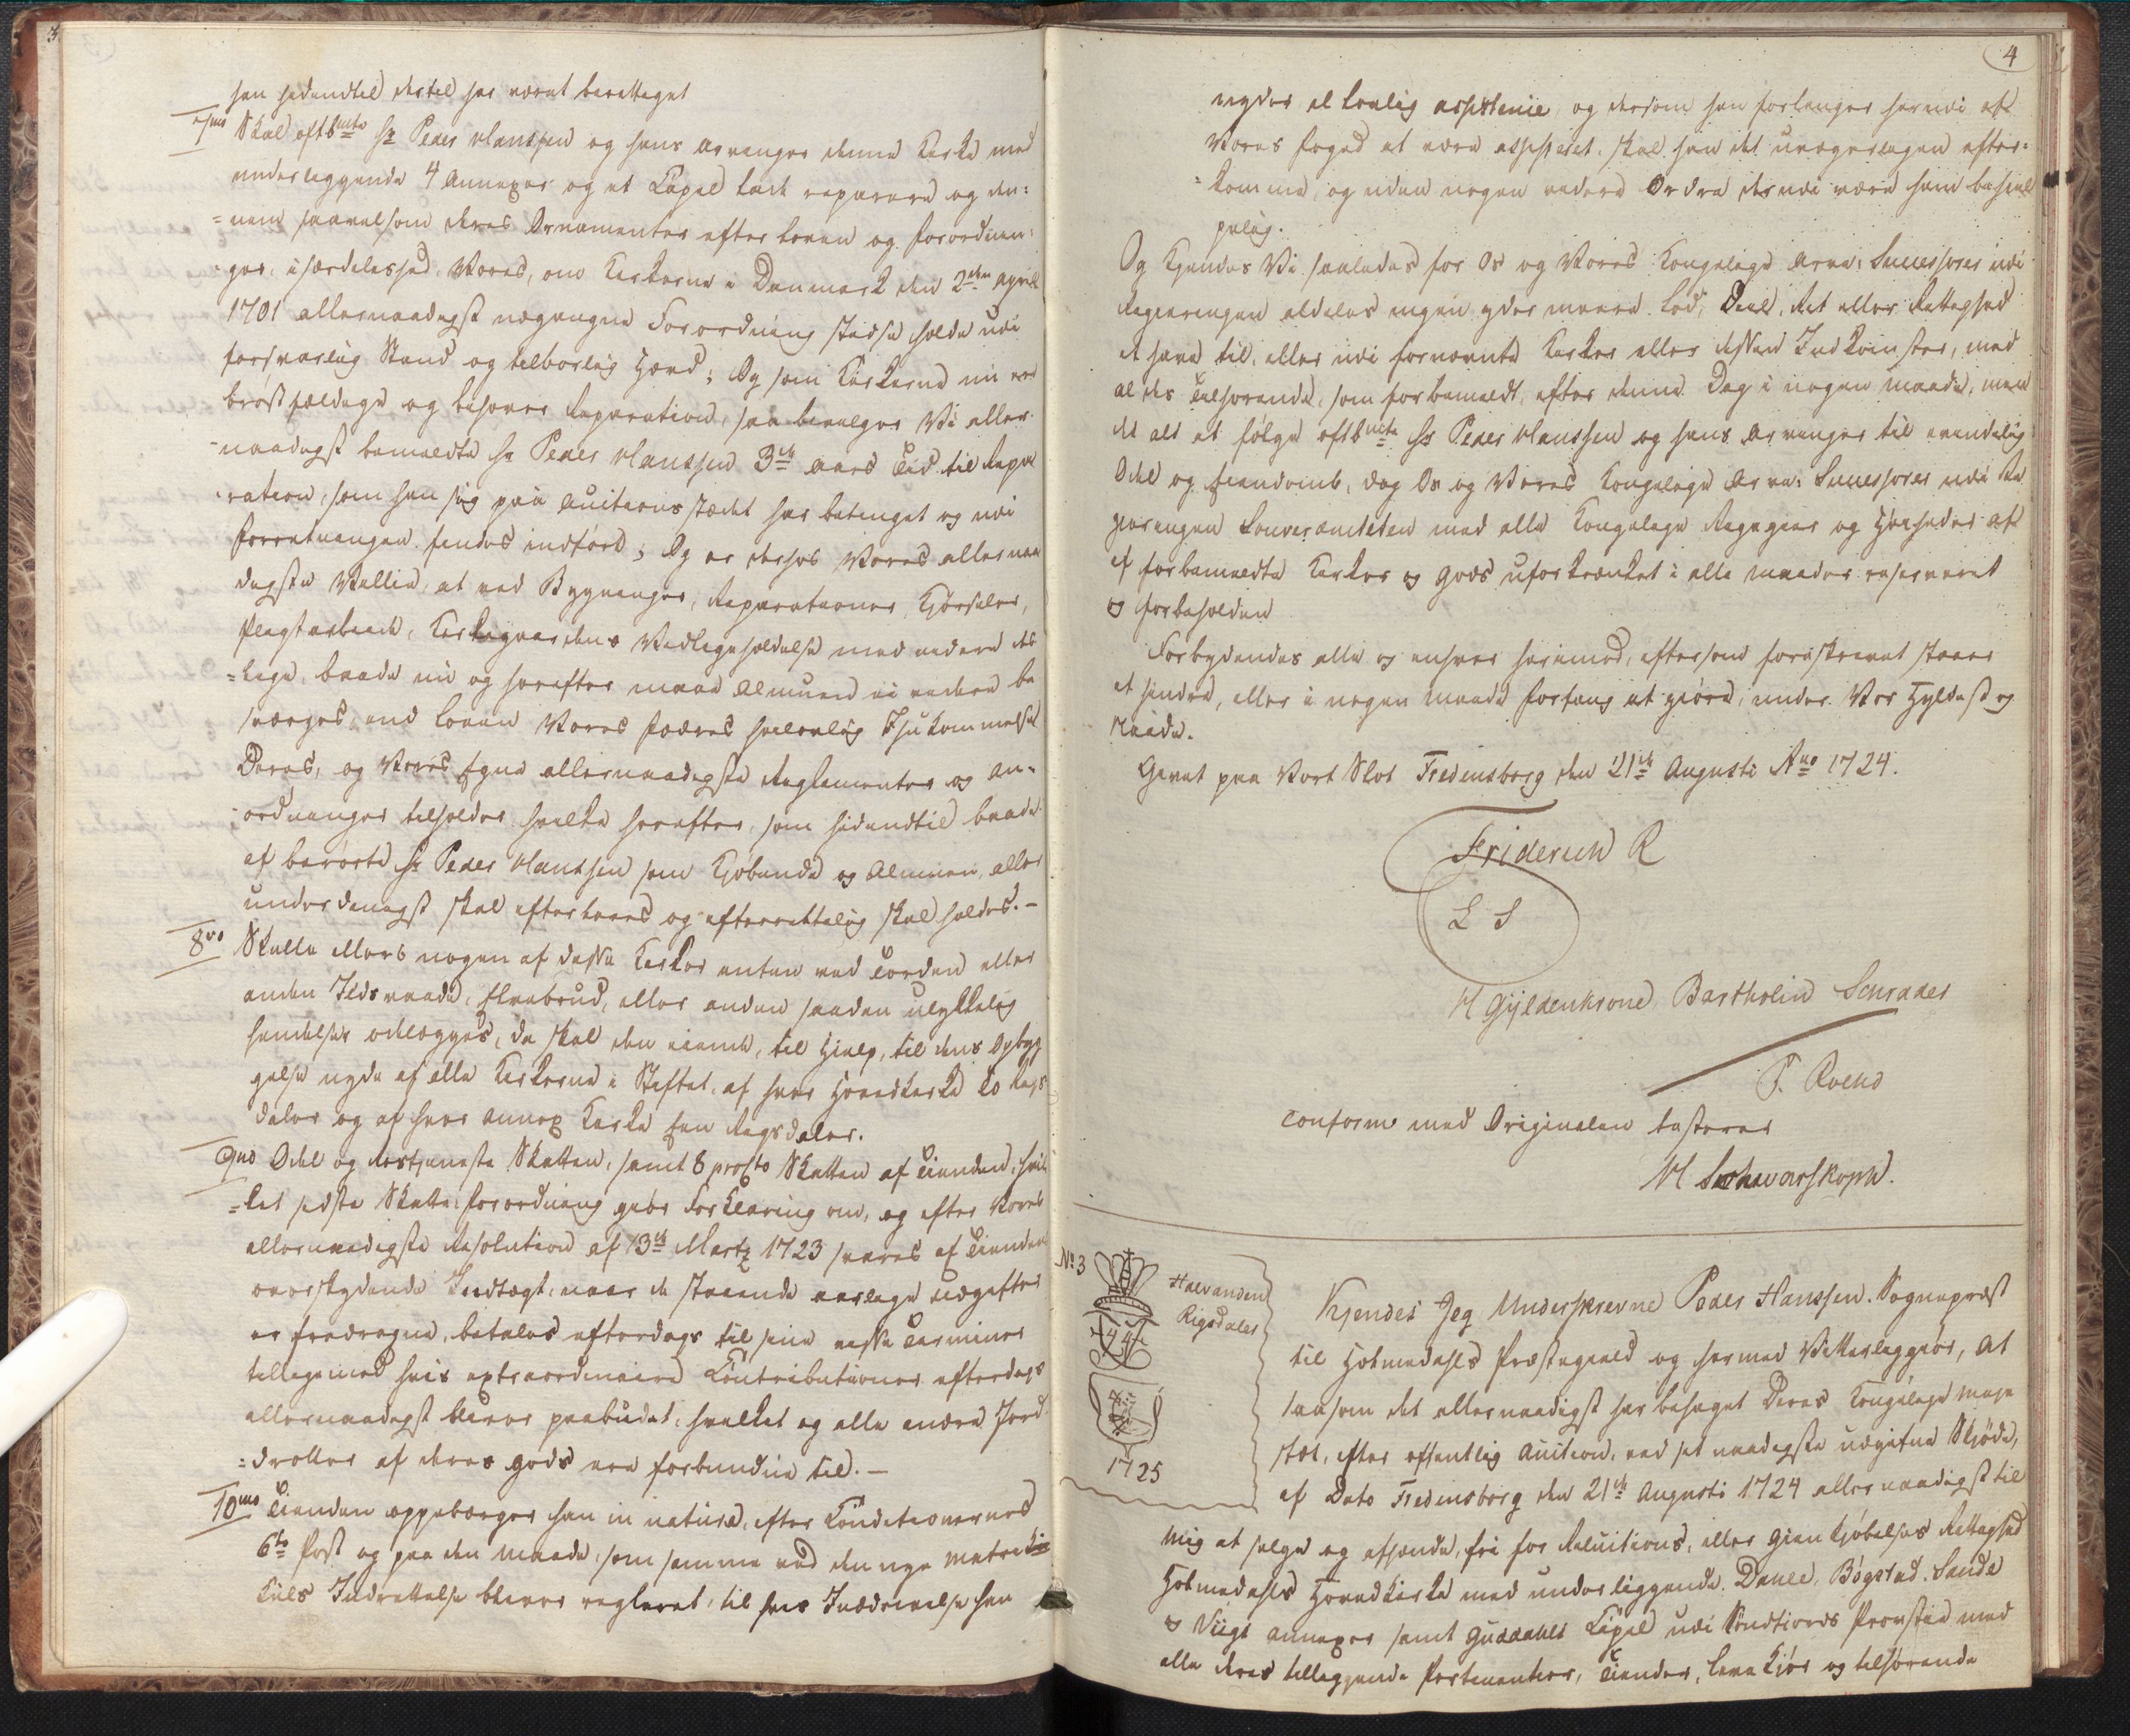 3
han hidindtil dertil har været berettiget
7mo Skal oftbmte Hr Peder Hanssen og hans Arvinger denne Kirke med
underliggende 4 Annexer og et Capel lade reparere og den:
=nem saavelsom deres Ornamenter efter Loven og Forordnin:
ger, i særdeleshed Vores, om Kirkerne i Danmark den 2den April
1701 allernaadigst udgangne Forordning stedse holde udi
forsvarlig Stand og tilbørlig Hævd; Og som Kirkerne nu ere
brøstfældige og behøver Reparation, saa bevilger Vi aller
=naadigst bemeldte Hr Peder Hanssen 3de Aars Tid til Repa
ration, som han sig paa Auctions stædet har betinget og udi
Forretningen findes indført; Og er derhos Vores allernaa
digste Villie, at ved Bygninger, Reparationer, Kjørseler,
Pligtarbeide, Kirkegaardens Vedligeholdelse med videre des
=lige, baade nu og herefter maae Almuen ei videre be
sværges, end Loven Vores Faders Høilovlig Ihukommelse
Deres, og Vores Egne allernaadigste Reglementer og An=
ordninger tilholder hvilke herefter, som hidindtil baade
af berørte Hr Peder Hanssen som Kjøbende og Almuen, aller
underdanigst skal efterleves og efterrettelig skal holdes.-
8vo Skulle ellers nogen af disse Kirker enten ved Torden eller
anden Ildsvaade, Flaabrud, eller anden saadan ulykkelig
hendelser ødelægges, da skal den eiende, til Hielp, til dens Opbyg
gelse nyde af alle Kirkerne i Stiftet, af hver Hovedkirke To Rigs
daler og af hver Annex Kirke Een Rigsdaler.
9no Odel og Rostjeneste Skatten, samt 8 procto Skatten af Tienden, hvil
=ket sidste Skatte Forordning giør Forklaring om, og efter Vores
allernaadigste Resolution af 13de Martz 1723 svares af Tienden
overskydende Indtægt, naar de staaende aarlige udgifter
er fradragne, betales efterdags til sine visse Terminer
tilligemed hvis extraordinaire Contributioner efterdags
allernaadigst bliver paabudet, hvilket og alle andre Jord
=drotter af deres gods ere forbundne til.-
10mo Tienden oppebærger han in natura, efter Conditionernes
6te Post og paa den Maade, som samme ved den nye Matri
kuls Indrettelse bliver regleret, til hvis Inddrivelse han
4
nyder al lovlig assistence, og dersom han forlanger herudi af
Vores Foged at være assisteret, skal han det uvægerlagen efter=
=komme, og uden nogen videre Ordre derudi være ham behiel
pelig.
Og Kjendes Vi saaledes for Os og Vores Kongelige Arve: Successores udi
Regieringen aldeles ingen ydermeere Lod, Deel, Ret eller Rettighed
at have til, eller udi fornævnte Kirker eller dessen Indkomster, med
al des Tilhørende, som forbemeldt, efter denne Dag i nogen Maade, men
det alt at følge oftbmte Hr Peder Hanssen og hans Arvinger til evindelig
Odel og Eiendomb, dog Os og Vores Kongelige Arve: Successores udi Re
gieringen Souverainiteten med alle Kongelige Regagier og Høiheder af
if forbemeldte Kirker og Gods uforkrænket i alle Maader reserveret
og forbeholden
Forbydendes alle og enhver herimod, eftersom foreskrevet staaer
at hindre, eller i nogen Maade Forfang at giøre, under Vor Hyldest og
Naade.
Givet paa Vort Slot Fredensborg den 21de Augusti Ano 1724.
Friderich R
L S
H Gyldenkrone Bartholin Schrader
F. Roens
conform med Originalen testerer
H Schwarskoph.
No 3
Halvanden
Rigsdaler
F4
1725
Kjendes Jeg Underskrevne Peder Hanssen. Sognepræst
til Holmedahls Præstegield og hermed Vitterliggiør, At
saasom det allernaadigst har behaget Deres Kongelige Maje
stæt, efter offentlig Auction, ved sit naadigste udgifne Skjøde,
af Dato Fredensborg den 21de Augusti 1724 allernaadigst til
mig at selge og afhænde, fri for Reluitions, eller Gien Kjøbelses Rettighed
Holmedahls Hovedkirke med underliggende. Dahle, Bøgstad. Sande
og Viigs Annexer samt Guddahls Capel udi Søndfiords Provstie med
alle deres tilliggende Pertinentier, Tiender, Leve Kiør og tilhørende